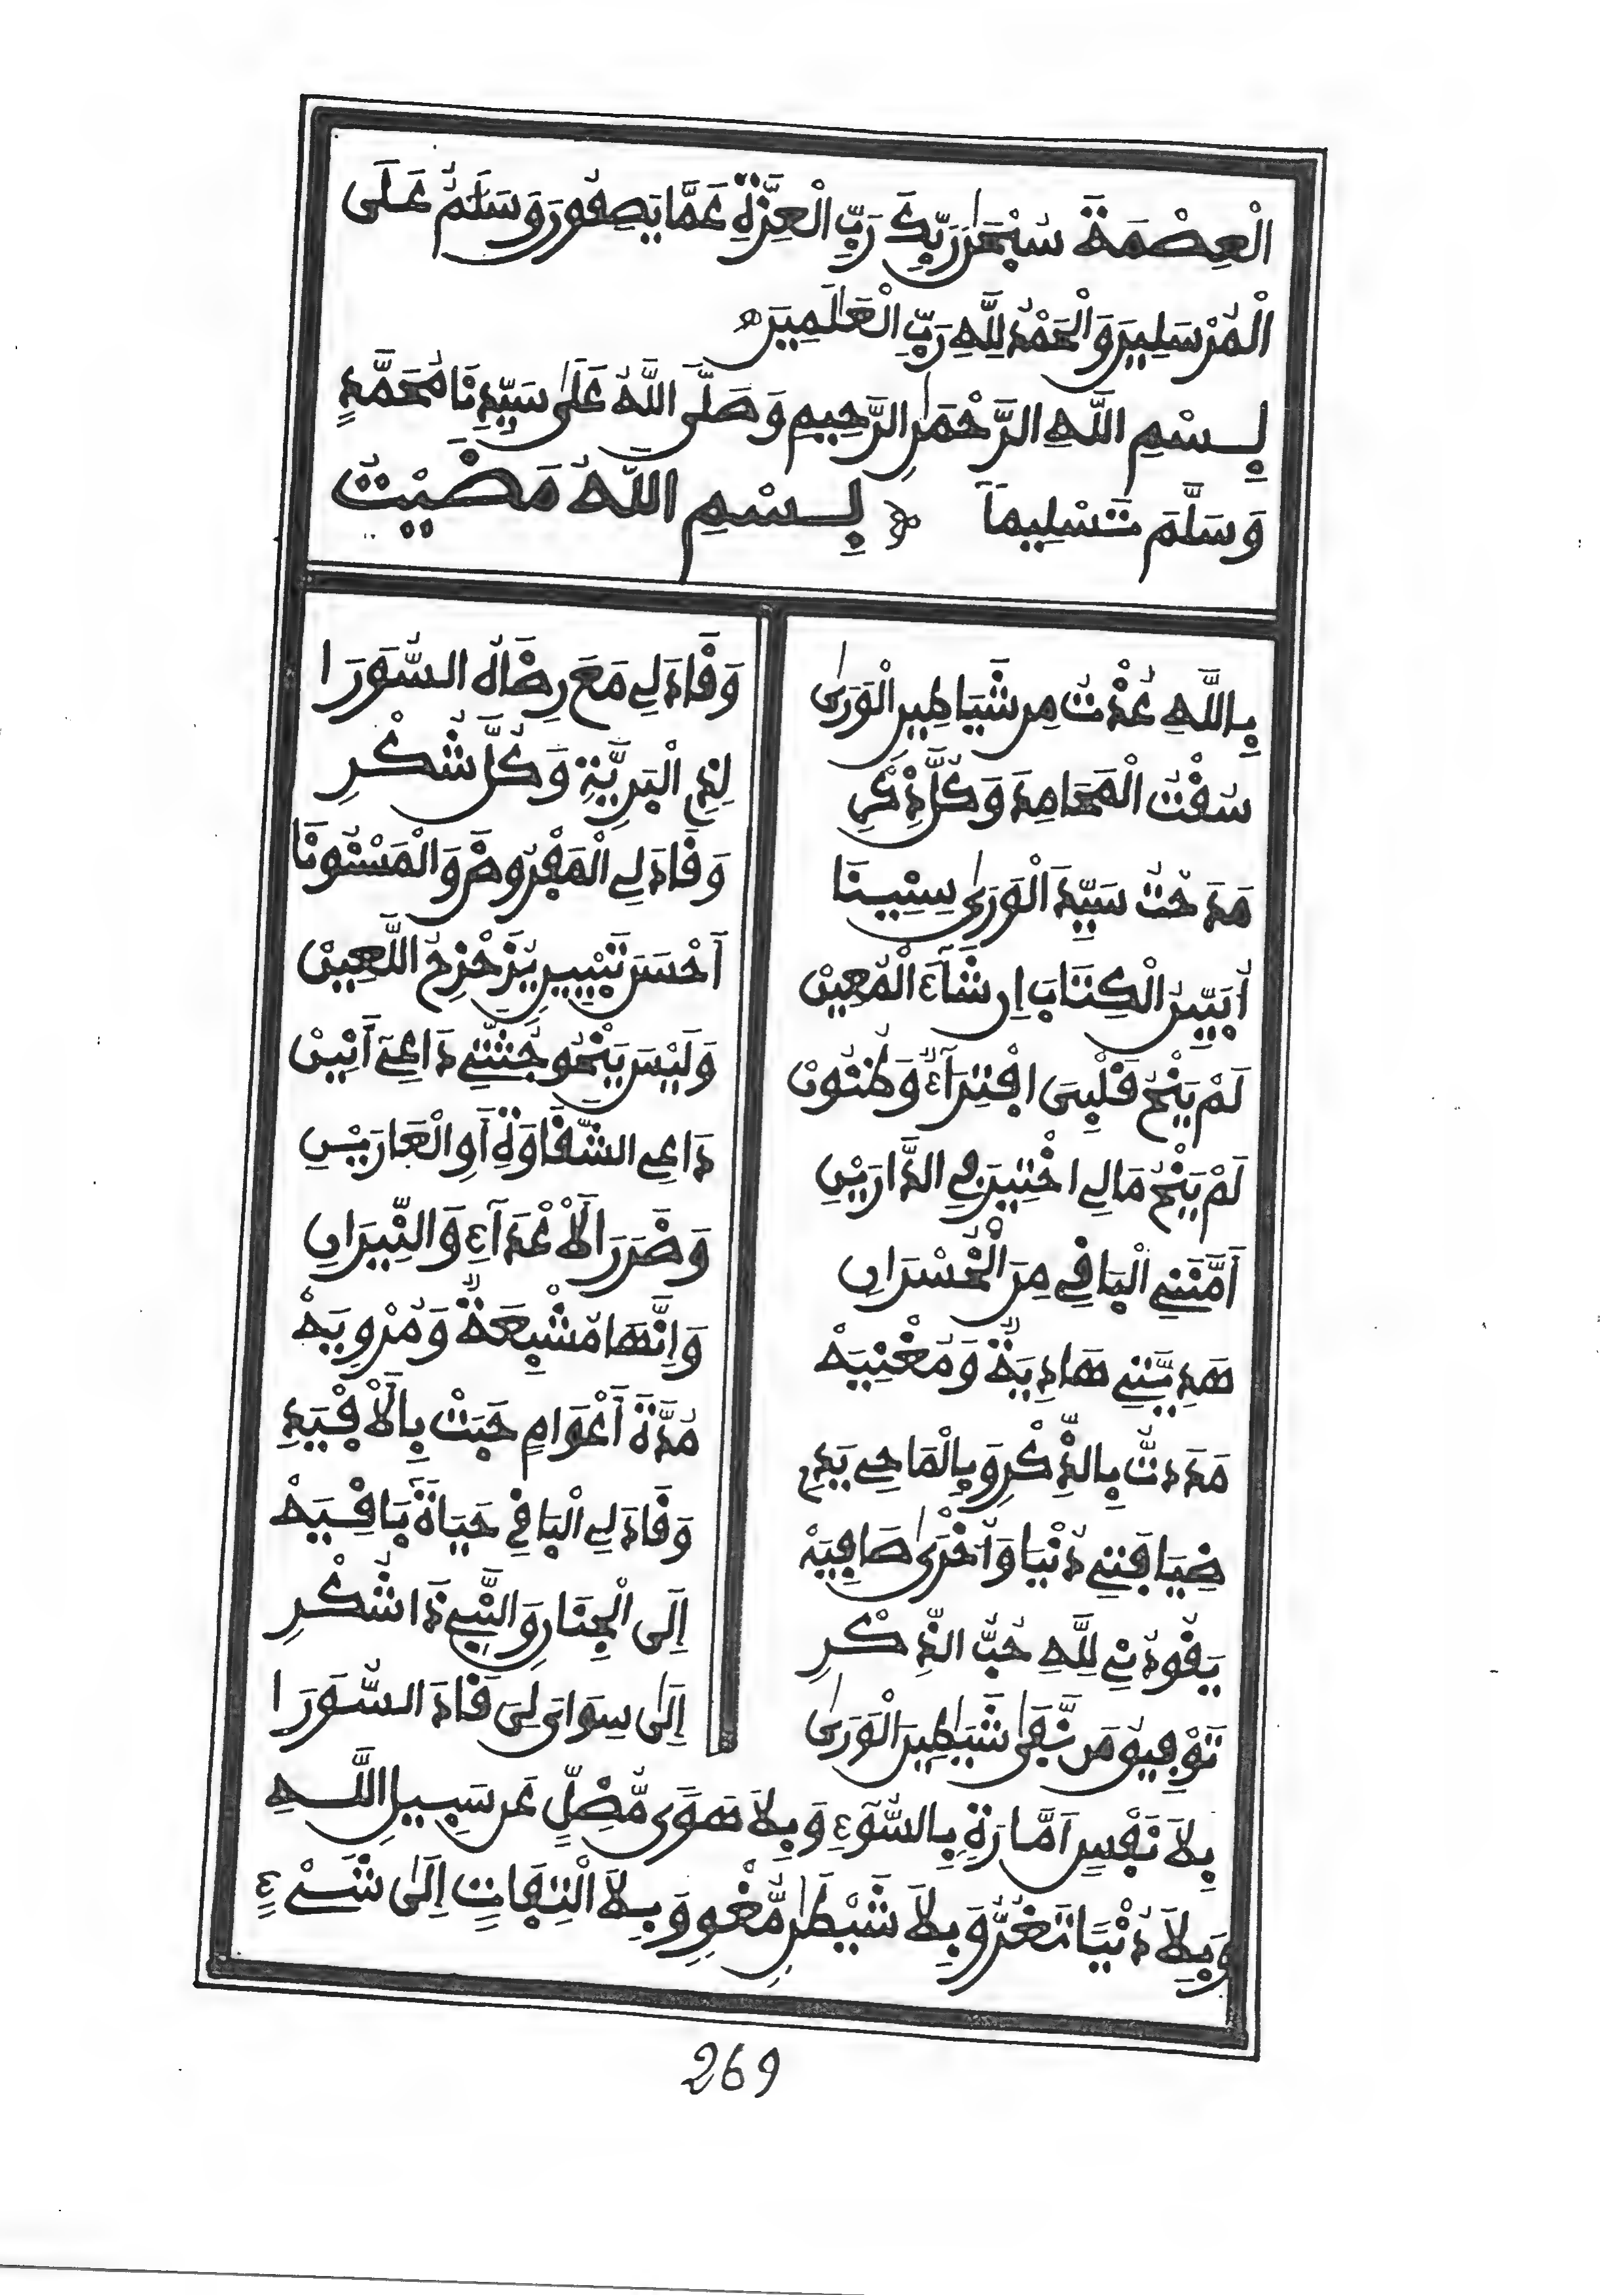 الْعِصْمَةَ سُبْحَٰنَ رَبِّكَ رَبِّ الْعِزَّةِ عَمَّا يَصِفُونَ وَسَلَٰمٌ عَلَى
الْمُرْسَلِينَ وَالْحَمْدُ لِلَّهِ رَبِّ الْعَٰلَمِينَ
بِسْمِ اللَّهِ الرَّحْمَٰنِ الرَّحِيمِ وَصَلَّى اللَّهُ عَلَىٰ سَيِّدِنَا مُحَمَّدٍ
وَسَلَّمَ تَسْلِيماً بِسْمِ اللَّهِ مَضَيْتُ
بِاللَّهِ عُذْتُ مِن شَيَاطِينِ الْوَرَىٰ وَقَادَ لِي مَعَ رِضَاهُ السُّوَرَا
سُقْتُ الْمَحَامِدَ وَكُلَّ ذِكْرِ لِذِي الْبَرِيَّةِ وَكُلَّ شُكْرِ
مَدَحْتُ سَيِّدَ الْوَرَىٰ سِنِينَا وَقَادَ لِي الْمَفْرُوضَ وَالْمَسْنُونَا
أُبَيِّنُ الْكِتَابَ إِن شَاءَ الْمُعِينْ أَحْسَنَ تَبْيِينٍ يُزَحْزِحُ اللَّعِينْ
لَمْ يَنْحُ قَلْبِىَ افْتِرَاءٌ وَظُنُونْ وَلَيْسَ يَنْحُو جُثَّتِي دَاعِي أَنِينْ
لَمْ يَنْحُ مَالِي اخْتِيرَ فِي الدَّارَيْنِ دَاعِي الشَّقَاوَةِ أَوِ الْعَارَيْنِ
أَمَّنَنِي الْبَاقِي مِنَ الْخُسْرَانِ وَضَرَرَ الْأَعْدَاءِ وَالنِّيرَانِ
هَدِيَّتِي هَادِيَةٌ وَمُغْنِيَهْ وَإِنَّهَا مُشْبِعَةٌ وَمُرْوِيَهْ
مَدَدتُّ بِالذِّكْرِ وَبِالْمَاحِي يَدِي مُدَّةَ أَعْوَامٍ حَبَتْ بِالْأَفْيَدِ
ضِيَافَتِي دُنْيَا وَأُخْرَىٰ صَافِيَهْ وَقَادَ لِي الْبَاقِي حَيَاةً بَاقِيَهْ
يَقُودُنِي لِلَّهِ حُبُّ الذِّكْرِ إِلَى الْجِنَانِ وَالنَّبِيِّ ذَا شُكْرِ
تَوْفِيقُ مَن نَّفَىٰ شَيَٰطِينَ الْوَرَىٰ إِلَىٰ سِوَاىَ لِىَ قَادَ السُّوَرَا
بِلَا نَفْسٍ أَمَّارَةٍ بِالسُّوءِ وَبِلَا هَوًى مُّضِلٍّ عَن سَبِيلِ اللَّهِ
وَبِلَا دُنْيَا تَغُرُّ وَبِلَا شَيْطَٰنٍ مُّغْوٍ وَبِلَا الْتِفَاتٍ إِلَىٰ شَيْءٍ
269